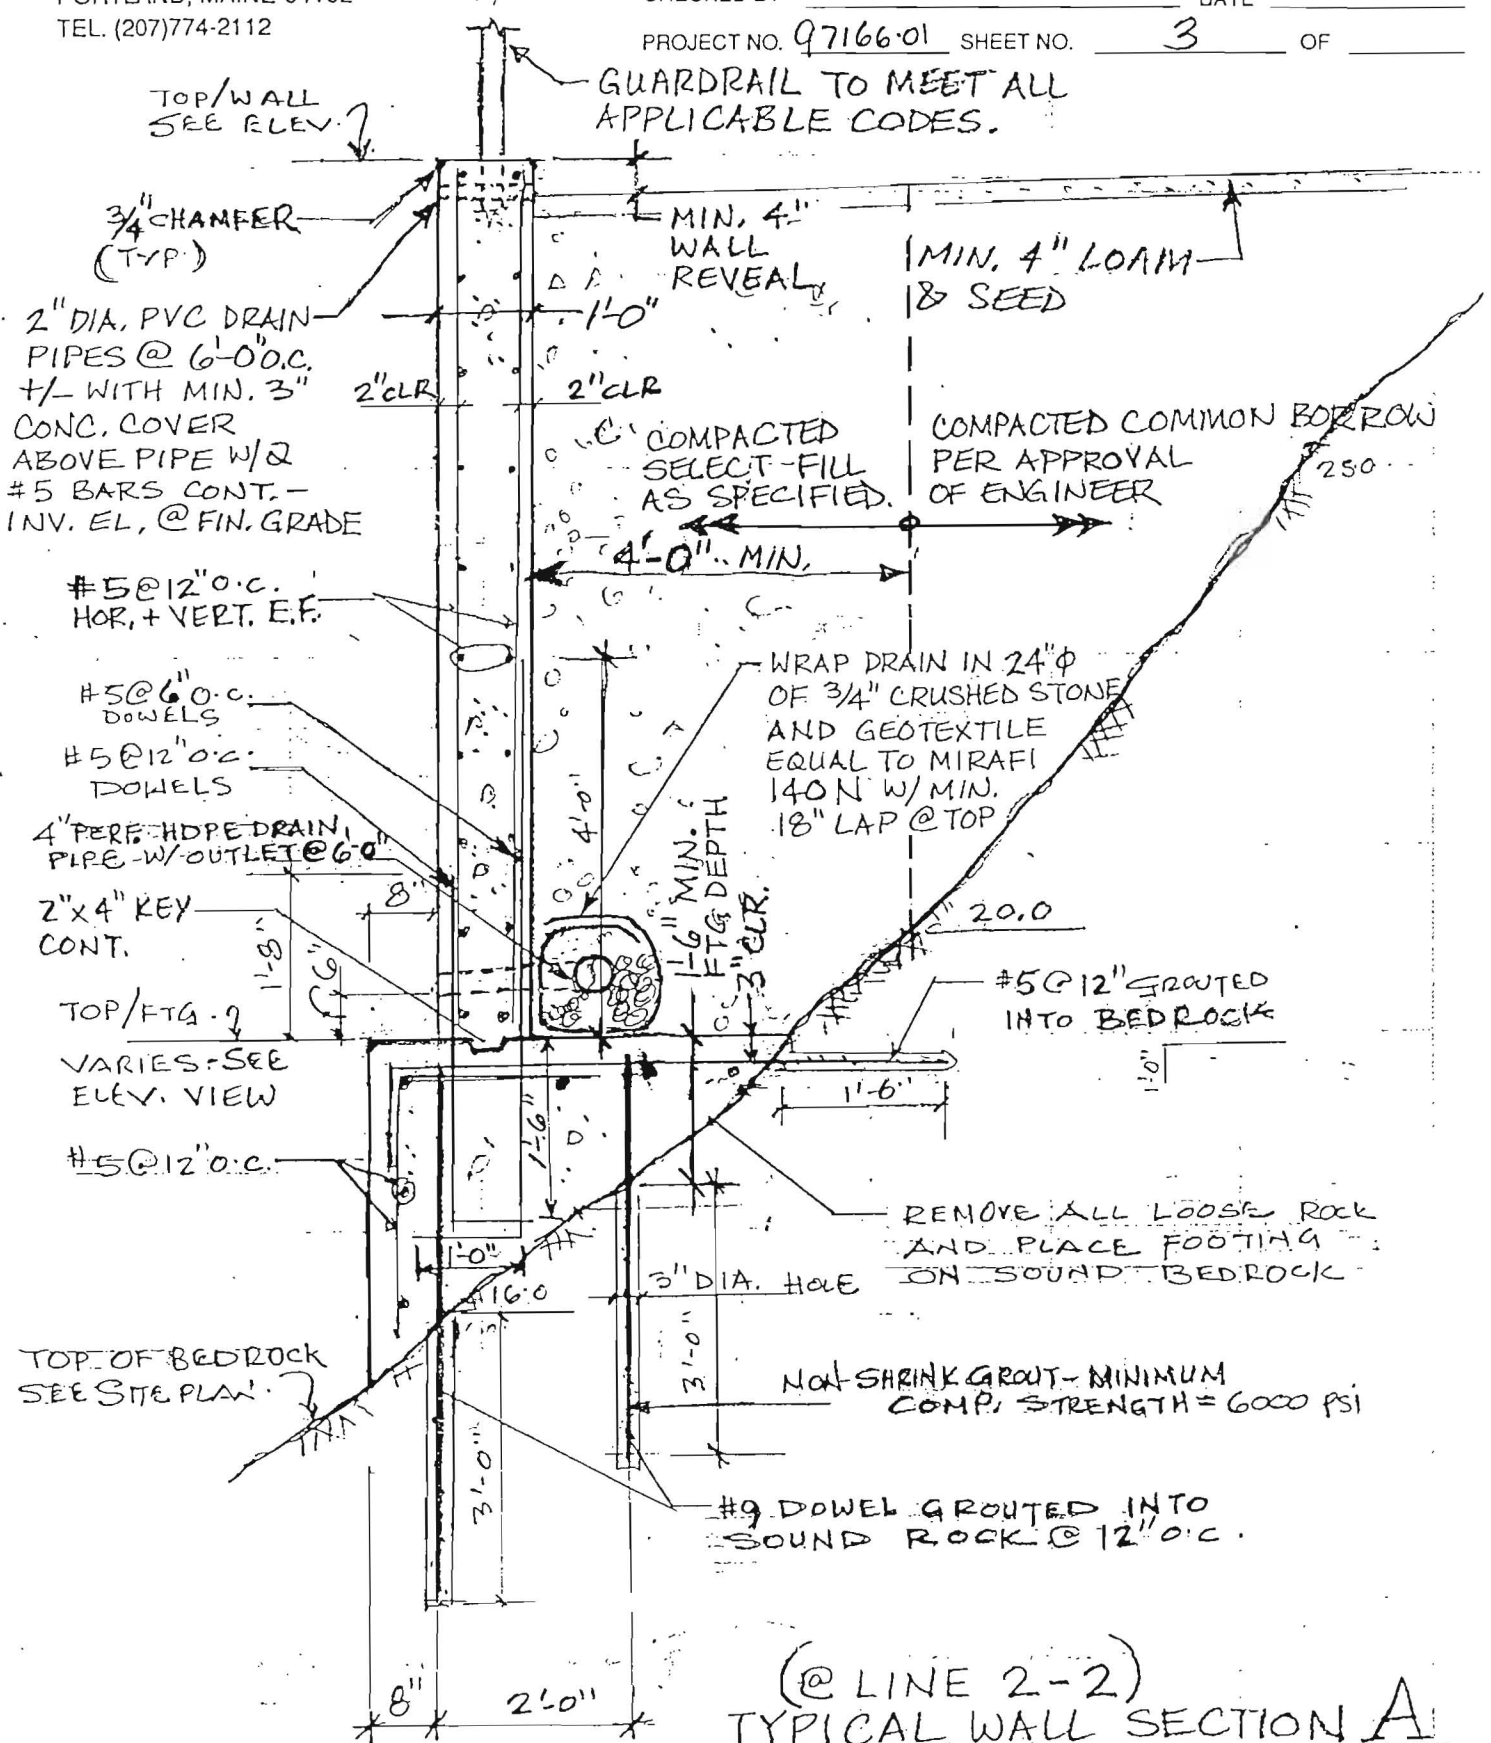 TEL. (207)774-2112
PROJECT NO. 97166.01 SHEET NO. 3 OF
GUARDRAIL TO MEET ALL
APPLICABLE CODES.
TOP/WALL
SEE ELEV.
3/4" CHAMFER
(TYP.)
MIN. 4"
WALL
REVEAL
MIN. 4" LOAM
& SEED
2" DIA. PVC DRAIN
PIPES @ 6'-0" O.C.
+/- WITH MIN. 3"
CONC. COVER
ABOVE PIPE W/2
#5 BARS CONT. -
INV. EL. @ FIN. GRADE
1'-0"
2" CLR
2" CLR
COMPACTED
SELECT-FILL
AS SPECIFIED.
COMPACTED COMMON BORROW
PER APPROVAL
OF ENGINEER
25.0
4'-0" MIN.
#5 @ 12" O.C.
HOR. + VERT. E.F.
#5 @ 6" O.C.
DOWELS
#5 @ 12" O.C.
DOWELS
4" PERF. HDPE DRAIN
PIPE W/ OUTLET @ 6'-0"
WRAP DRAIN IN 24" φ
OF 3/4" CRUSHED STONE
AND GEOTEXTILE
EQUAL TO MIRAFI
140 N W/ MIN.
18" LAP @ TOP
4'-0"
1'-6" MIN.
FTG DEPTH
3" CLR.
8"
2" x 4" KEY
CONT.
1'-8"
6"
20.0
#5 @ 12" GROUTED
INTO BEDROCK
TOP/FTG.
VARIES - SEE
ELEV. VIEW
1'-6"
1'-6"
1'0"
#5 @ 12" O.C.
REMOVE ALL LOOSE ROCK
AND PLACE FOOTING
ON SOUND BEDROCK
1'-0"
16.0
3" DIA. HOLE
TOP OF BEDROCK
SEE SITE PLAN.
3'-0"
NON-SHRINK GROUT - MINIMUM
COMP. STRENGTH = 6000 PSI
3'-0"
#9 DOWEL GROUTED INTO
SOUND ROCK @ 12" O.C.
8"
2'-0"
(@ LINE 2-2)
TYPICAL WALL SECTION A